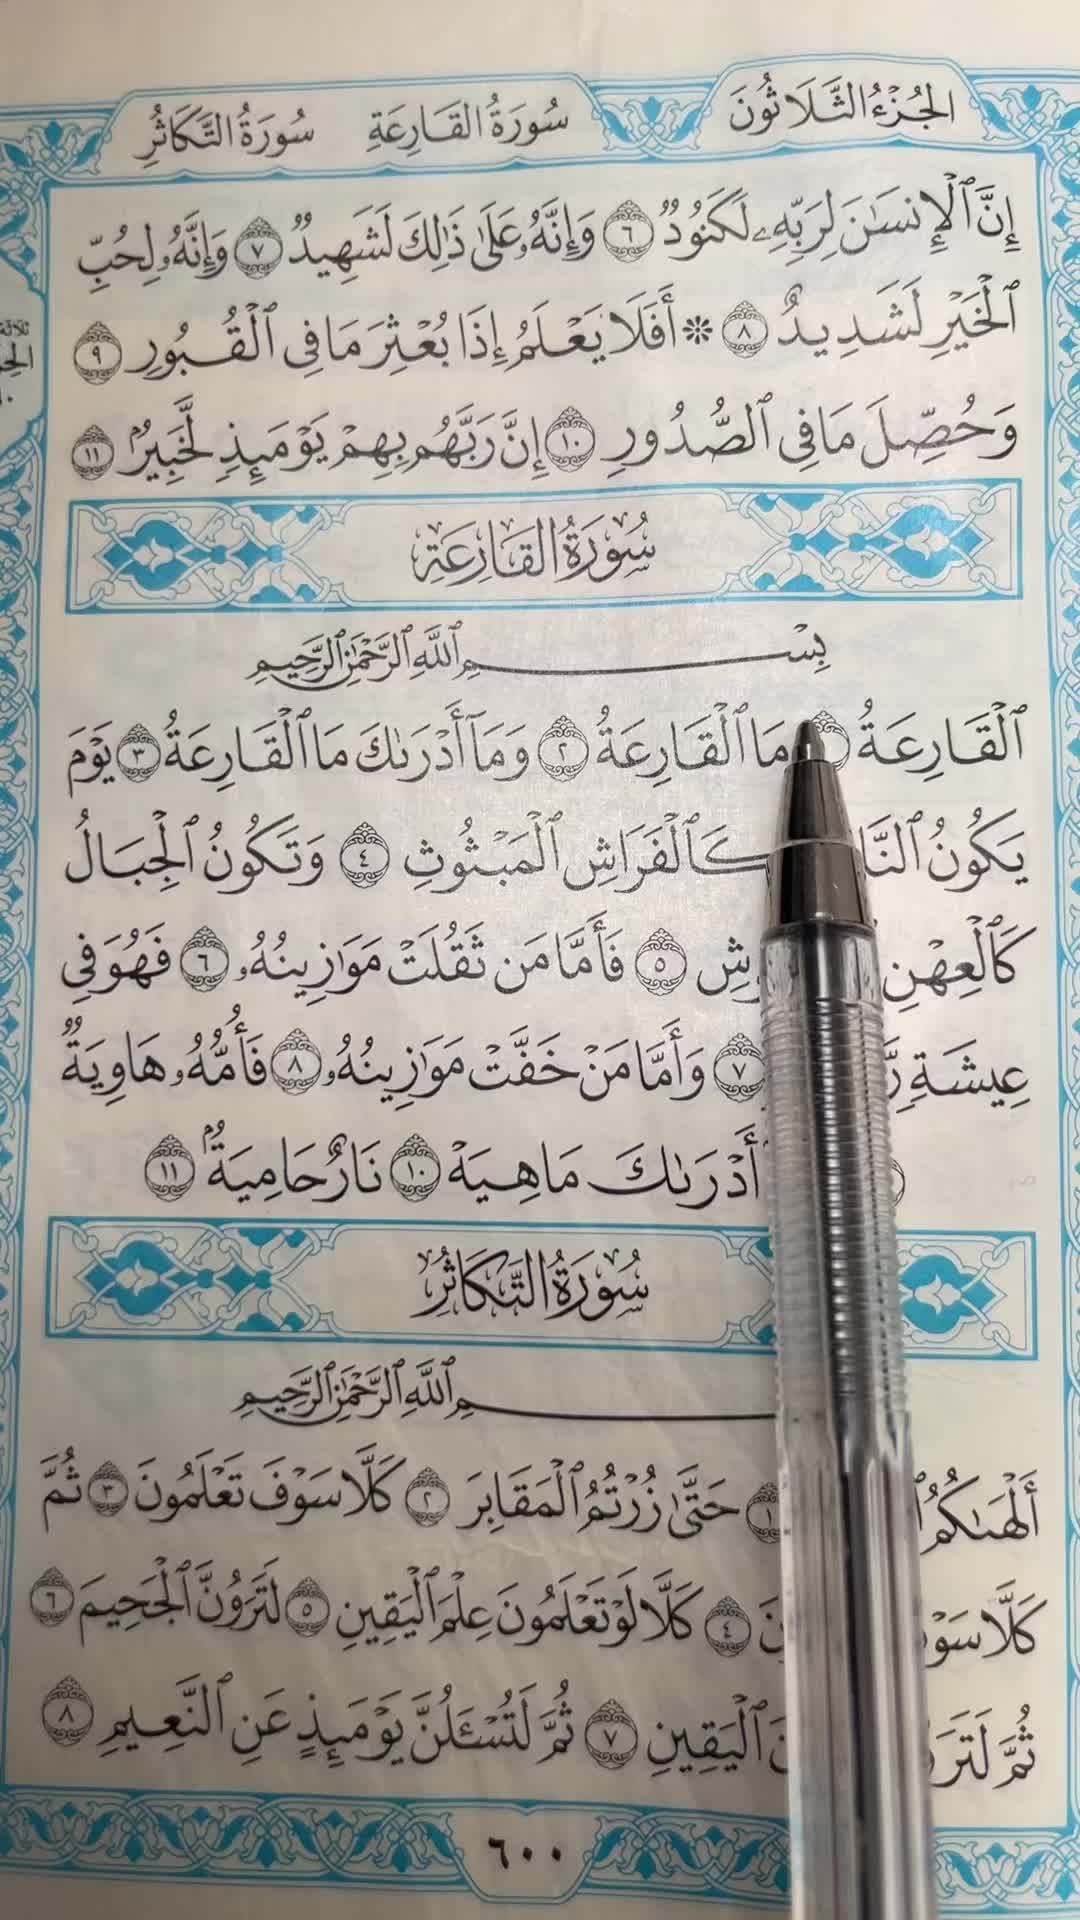 الجُزْءُ الثَّلَاثُونَ سُورَةُ القَارِعَةِ سُورَةُ التَّكَاثُرِ
إِنَّ ٱلْإِنسَٰنَ لِرَبِّهِۦ لَكَنُودٌ ٦ وَإِنَّهُۥ عَلَىٰ ذَٰلِكَ لَشَهِيدٌ ٧ وَإِنَّهُۥ لِحُبِّ
ٱلْخَيْرِ لَشَدِيدٌ ٨ ۞ أَفَلَا يَعْلَمُ إِذَا بُعْثِرَ مَا فِي ٱلْقُبُورِ ٩
وَحُصِّلَ مَا فِي ٱلصُّدُورِ ١٠ إِنَّ رَبَّهُم بِهِمْ يَوْمَئِذٍ لَّخَبِيرٌۢ ١١
سُورَةُ القَارِعَةِ
بِسْمِ ٱللَّهِ ٱلرَّحْمَٰنِ ٱلرَّحِيمِ
ٱلْقَارِعَةُ مَا ٱلْقَارِعَةُ ٢ وَمَآ أَدْرَىٰكَ مَا ٱلْقَارِعَةُ ٣ يَوْمَ
يَكُونُ كَٱلْفَرَاشِ ٱلْمَبْثُوثِ ٤ وَتَكُونُ ٱلْجِبَالُ
كَٱلْعِهْنِ ٥ فَأَمَّا مَن ثَقُلَتْ مَوَٰزِينُهُۥ ٦ فَهُوَ فِي
عِيشَةٍ ٧ وَأَمَّا مَنْ خَفَّتْ مَوَٰزِينُهُۥ ٨ فَأُمُّهُۥ هَاوِيَةٌ
أَدْرَىٰكَ مَا هِيَهْ ١٠ نَارٌ حَامِيَةٌۢ ١١
سُورَةُ التَّكَاثُرِ
ٱللَّهِ ٱلرَّحْمَٰنِ ٱلرَّحِيمِ
أَلْهَىٰكُمُ ١ حَتَّىٰ زُرْتُمُ ٱلْمَقَابِرَ ٢ كَلَّا سَوْفَ تَعْلَمُونَ ٣ ثُمَّ
كَلَّا ٤ كَلَّا لَوْ تَعْلَمُونَ عِلْمَ ٱلْيَقِينِ ٥ لَتَرَوُنَّ ٱلْجَحِيمَ ٦
ثُمَّ ٱلْيَقِينِ ٧ ثُمَّ لَتُسْـَٔلُنَّ يَوْمَئِذٍ عَنِ ٱلنَّعِيمِ ٨
٦٠٠